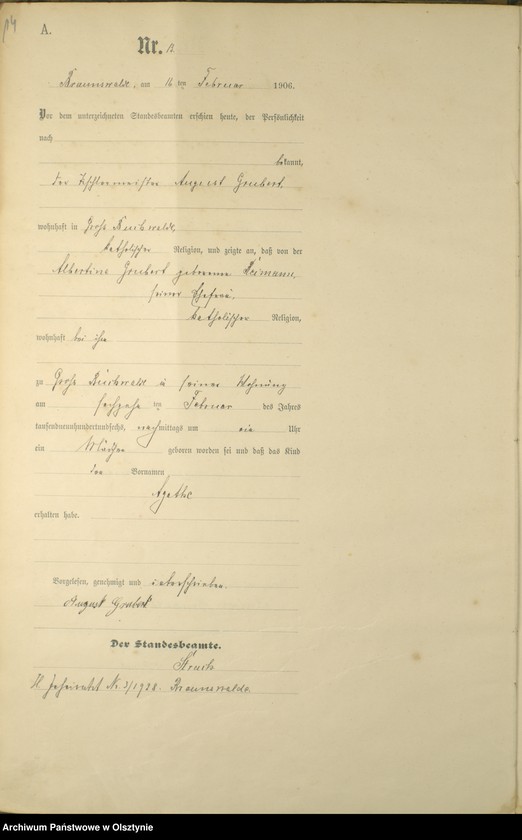 14
A.
Nr. 12
Braunswalde, am 16 ten Februar 1906.
Vor dem unterzeichneten Standesbeamten erschien heute, der Persönlichkeit
nach
bekannt,
der Tischlermeister August Grubert,
wohnhaft in Groß Buchwalde,
katholischer Religion, und zeigte an, daß von der
Albertine Grubert geborene Reimann,
seiner Ehefrau,
katholischer Religion,
wohnhaft bei ihm
zu Groß Buchwalde in seiner Wohnung
am ten Februar des Jahres
tausendneunhundertundsechs, nachmittags um Uhr
ein Mädchen geboren worden sei und daß das Kind
den Vornamen
Agathe
erhalten habe.
Vorgelesen, genehmigt und unterschrieben.
August Grubert
Der Standesbeamte.
geheiratet Nr. 3/1928. Braunswalde.
Archiwum Państwowe w Olsztynie